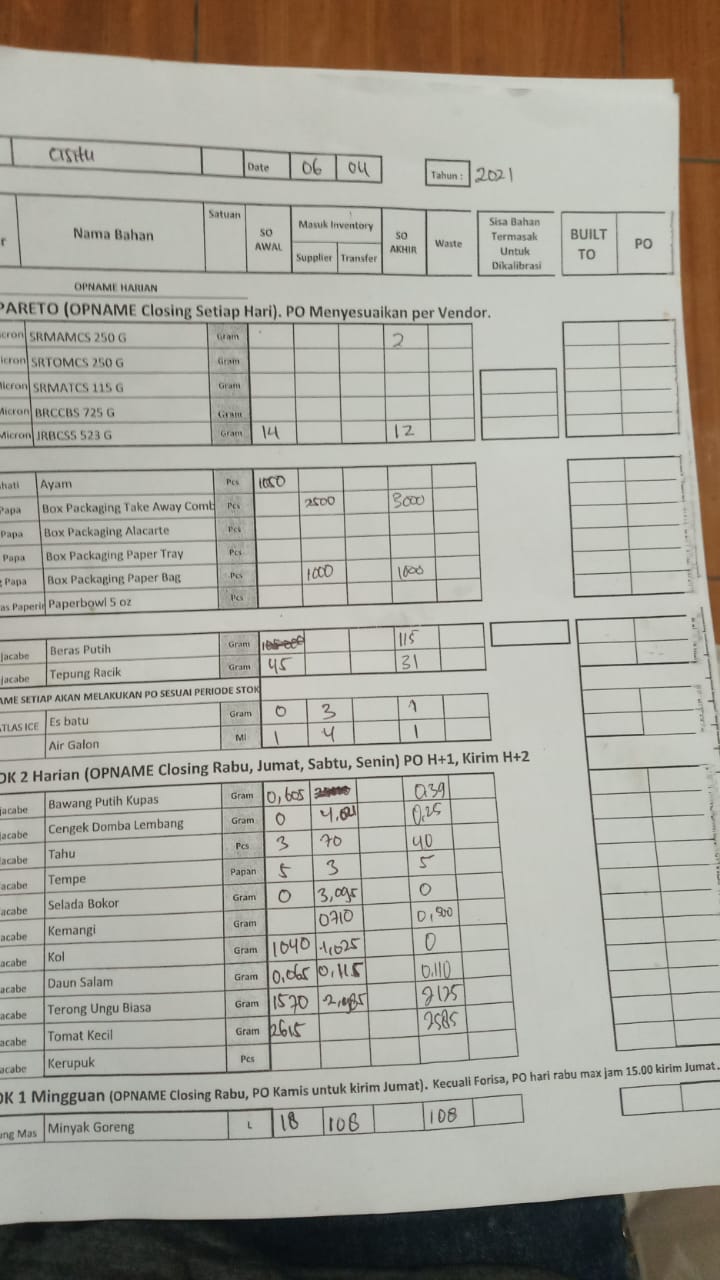 Cisitu Date 06 04 Tahun : 2021
r Nama Bahan Satuan SO AWAL Masuk Inventory Supplier Transfer SO AKHIR Waste Sisa Bahan Termasak Untuk Dikalibrasi BUILT TO PO
OPNAME HARIAN
PARETO (OPNAME Closing Setiap Hari). PO Menyesuaikan per Vendor.
icron SRMAMCS 250 G Gram 2
icron SRTOMCS 250 G Gram
Micron SRMATCS 115 G Gram
Micron BRCCBS 725 G Gram
Micron JRBCSS 523 G Gram 14 12
hati Ayam Pcs 1050
Papa Box Packaging Take Away Comb Pcs 2500 3000
Papa Box Packaging Alacarte Pcs
Papa Box Packaging Paper Tray Pcs
g Papa Box Packaging Paper Bag Pcs 1000 1000
as Paperin Paperbowl 5 oz Pcs
jacabe Beras Putih Gram 115
jacabe Tepung Racik Gram 45 31
AME SETIAP AKAN MELAKUKAN PO SESUAI PERIODE STOK
ATLAS ICE Es batu Gram 0 3 1
Air Galon Ml 1 4 1
OK 2 Harian (OPNAME Closing Rabu, Jumat, Sabtu, Senin) PO H+1, Kirim H+2
jacabe Bawang Putih Kupas Gram 0,605 0,39
jacabe Cengek Domba Lembang Gram 0 0,25
acabe Tahu Pcs 3 70 40
acabe Tempe Papan 5 3 5
acabe Selada Bokor Gram 0 3,095 0
acabe Kemangi Gram 0710
acabe Kol Gram 1040 1,025 0
acabe Daun Salam Gram 0,065 0,115 0,110
acabe Terong Ungu Biasa Gram 1570 2,085 2125
acabe Tomat Kecil Gram 2615 2585
acabe Kerupuk Pcs
OK 1 Mingguan (OPNAME Closing Rabu, PO Kamis untuk kirim Jumat). Kecuali Forisa, PO hari rabu max jam 15.00 kirim Jumat.
ung Mas Minyak Goreng L 18 108 108